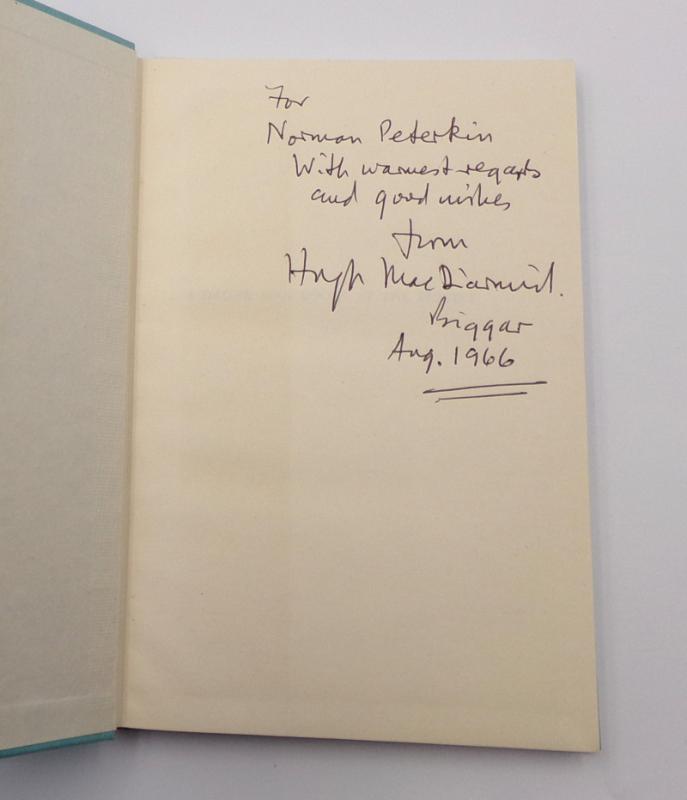 For
Norman Peterkin
With warmest regards
and good wishes
from
Hugh MacDiarmid.
Biggar
Aug. 1966